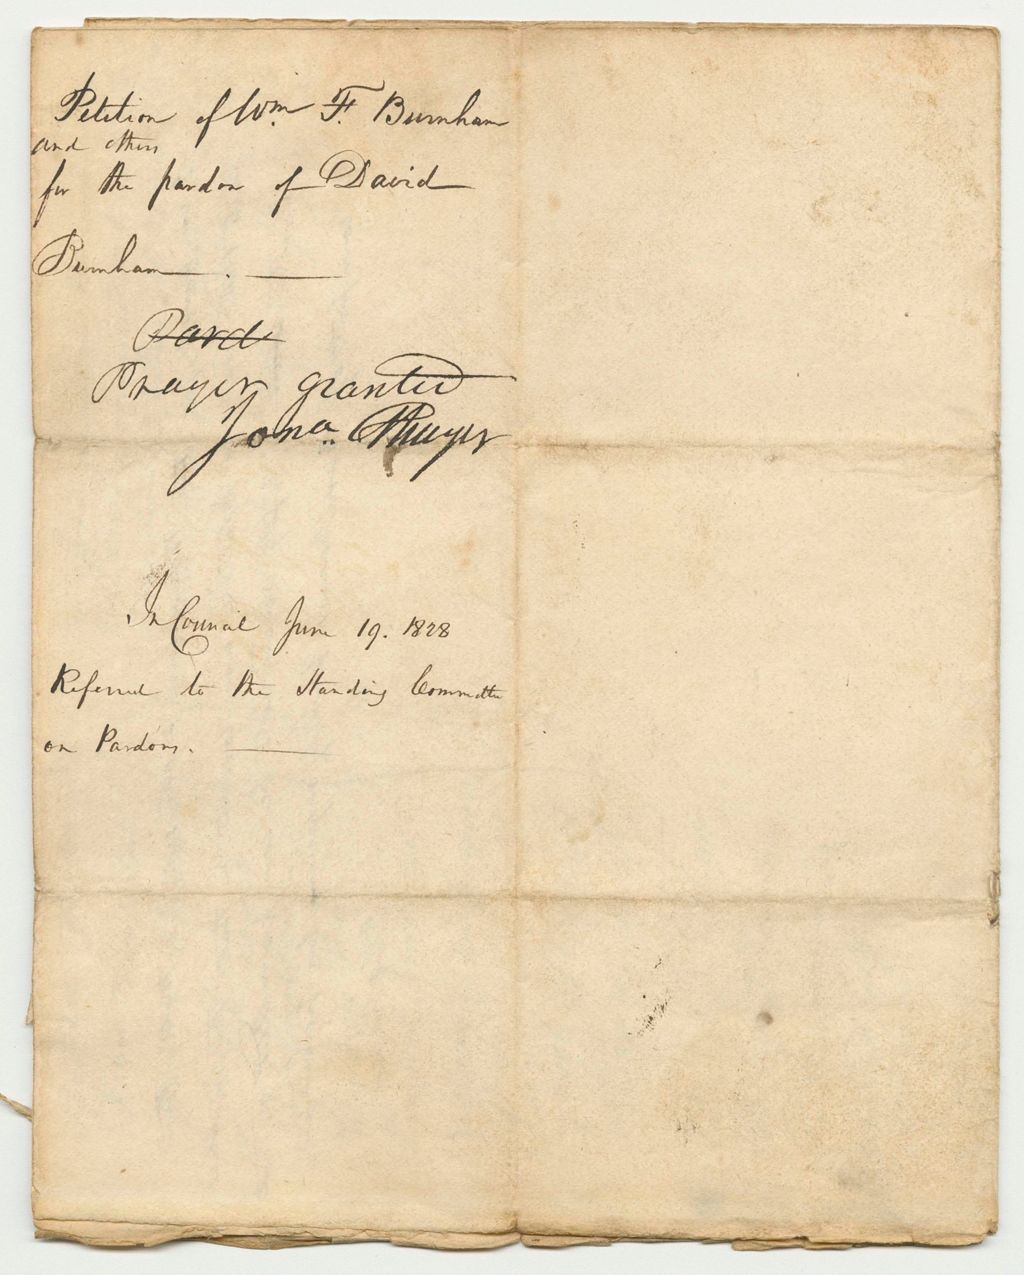 Petition of Wm. F. Burnham
and others
for the pardon of David
Burnham.
Pard
Prayer granted
Jona. Thayer
In Council June 19. 1828
Referred to the Standing Committee
on Pardons.